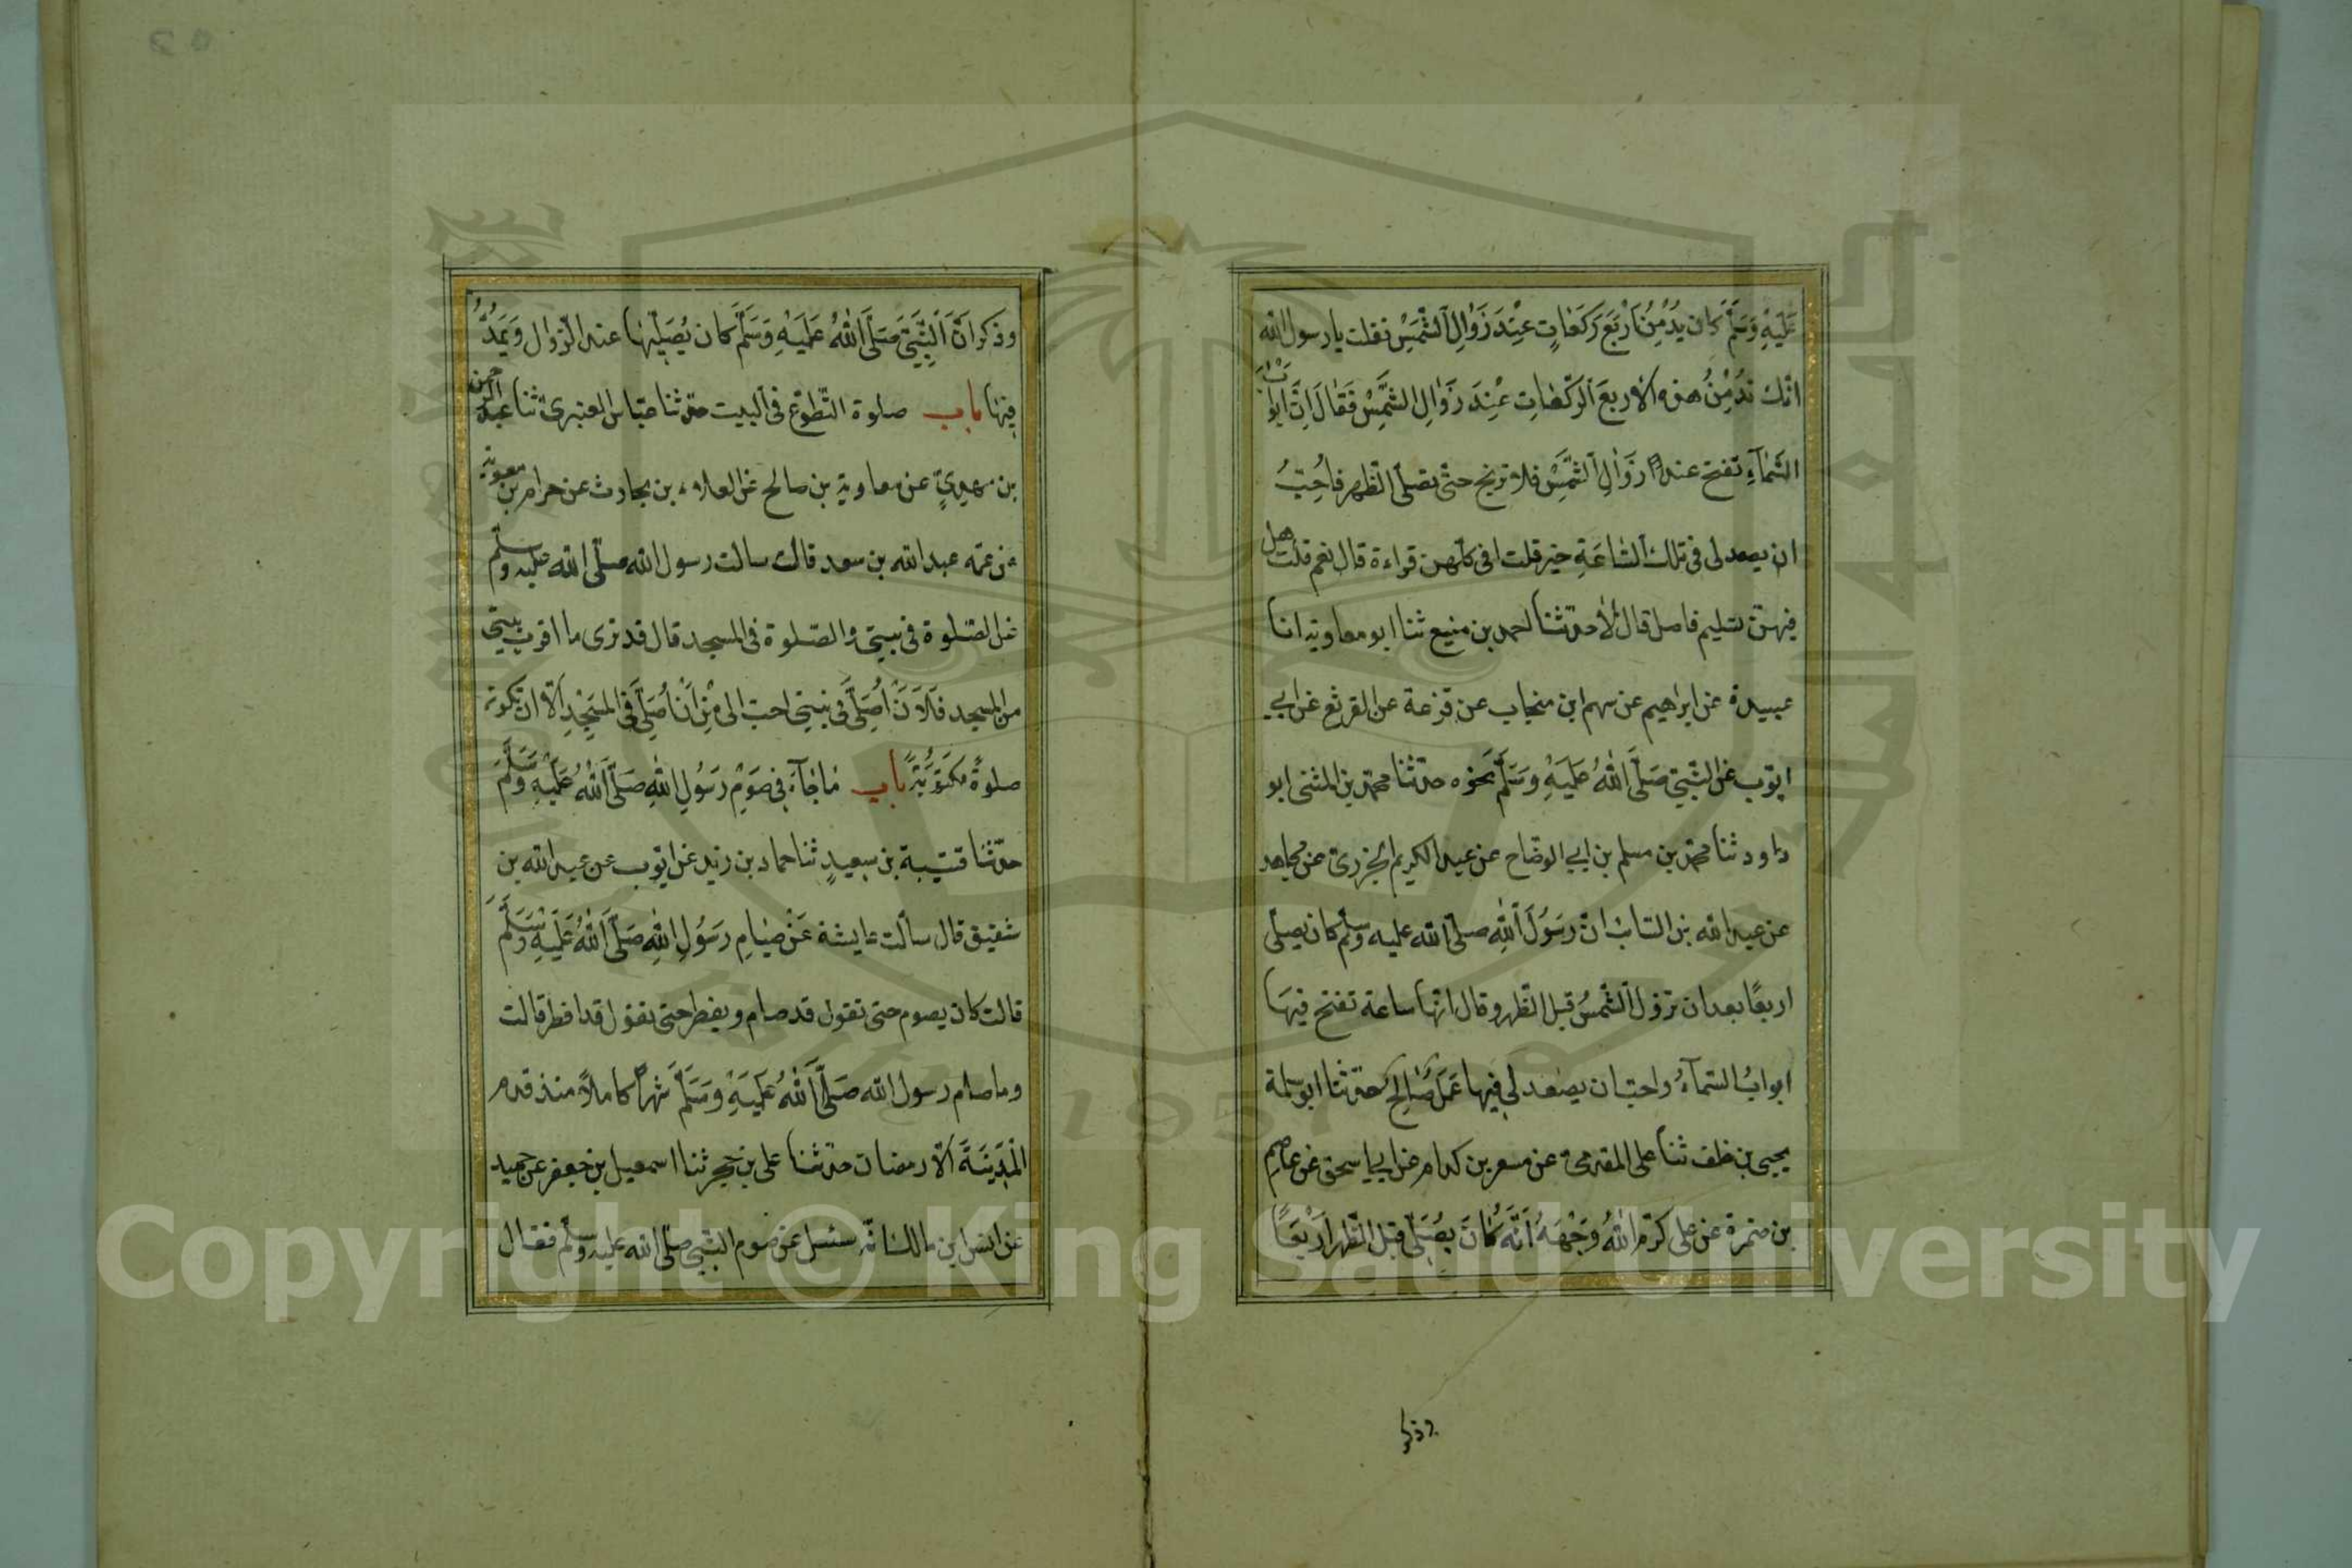 عَلَيْهِ وَسَلَّمَ كان يُدْمِنُ اَرْبَعَ رَكَعَاتٍ عِنْدَ زَوَالِ الشَّمْسِ فقلت يا رسول الله
انّك تُدْمِنُ هذه الاربعَ الرّكعَاتِ عِنْدَ زَوَالِ الشَّمْسِ فَقَالَ اِنَّ ابوابَ
السَّمَآءِ تفتح عند زَوَالِ الشَّمْسِ فلا ترتج حتّى تصلّى الظّهر فاُحِبُّ
ان يصعد لى فى تلك السَّاعَةِ خير قلت افى كلّهن قراءة قال نعم قلت هل
فيهنّ تسليم فاصل قال لا حدّثنا احمد بن منيع ثنا ابو معاوية انا
عبيدة عن ابراهيم عن سهم ابن منجاب عن قزعة عن القرثع عن ابي
ايّوب عن النّبيّ صَلَّى اللهُ عَلَيْهِ وَسَلَّمَ نحوه حدّثنا محمّد بن المثنى ابو
داود ثنا محمّد بن مسلم بن ابي الوضّاح عن عبد الكريم الجزرىّ عن مجاهد
عن عبد الله بن السّائب انّ رَسُولَ اللهِ صلّى الله عليه وسلّم كان يصلّى
اربعًا بعد ان تزول الشّمسُ قبل الظّهر وقال انّها ساعة تفتح فيهَا
ابوابُ السّمآءُ واحبّ ان يصعد لى فيها عَمَلٌ صَالِحٌ حدّثنا ابو سلمة
يحيى بن خلف ثنا على المقدمى عن مسعر بن كدام عن ابي اسحق عن عاصم
بن ضمرة عن على كرّم اللهُ وَجْهَهُ اَنَّهُ كَانَ يُصَلِّى قبل الظّهر اَرْبَعًا
وذكر
وذكر اَنَّ النَّبِيَّ صَلَّى اللهُ عَلَيْهِ وَسَلَّمَ كان يُصَلِّيْهَا عند الزّوال وَيَمُدُّ
فيهَا باب صلوة التّطوّع فى البيت حدّثنا عبّاس العنبرىّ ثنا عبد الرّحمن
بن مهديٍّ عن معاوية بن صالح عن العلاء بن الحارث عن حرام بن معوية
عن عمّه عبد الله بن سعد قال سالت رسول الله صلّى الله عليه وسلّم
عن الصّلوة فى بيتى والصّلوة فى المسجد قال قد ترى ما اقرب بيتى
من المسجد فَلَاَنْ اُصَلِّىَ فى بيتى احبّ الىّ مِنْ اَنْ اُصَلِّىَ فى المَسْجِدِ اَلّا ان تكون
صلوةً مكتُوبَةً باب مَا جَآءَ فِى صَوْمِ رَسُولِ اللهِ صَلَّى اللهُ عَلَيْهِ وَسَلَّمَ
حدّثنا قتيبة بن سعيدٍ ثنا حماد بن زيد عن ايّوب عن عبد الله بن
شقيق قال سألت عايشة عَنْ صِيَامِ رَسُولِ اللهِ صَلَّى اللهُ عَلَيْهِ وَسَلَّمَ
قالت كان يصوم حتى نقول قد صام ويفطر حتى نقول قد افطر قالت
وما صام رسول الله صَلَّى اللهُ عَلَيْهِ وَسَلَّمَ شهراً كاملاً منذ قدم
الْمَدِيْنَةَ الّا رمضان حدّثنا على بن حجر ثنا اسمعيل بن جعفر عن حميد
عن انس ابن مالك انّه سئل عن صوم النّبيّ صلّى الله عليه وسلّم فقال
Copyright © King Saud University
1957